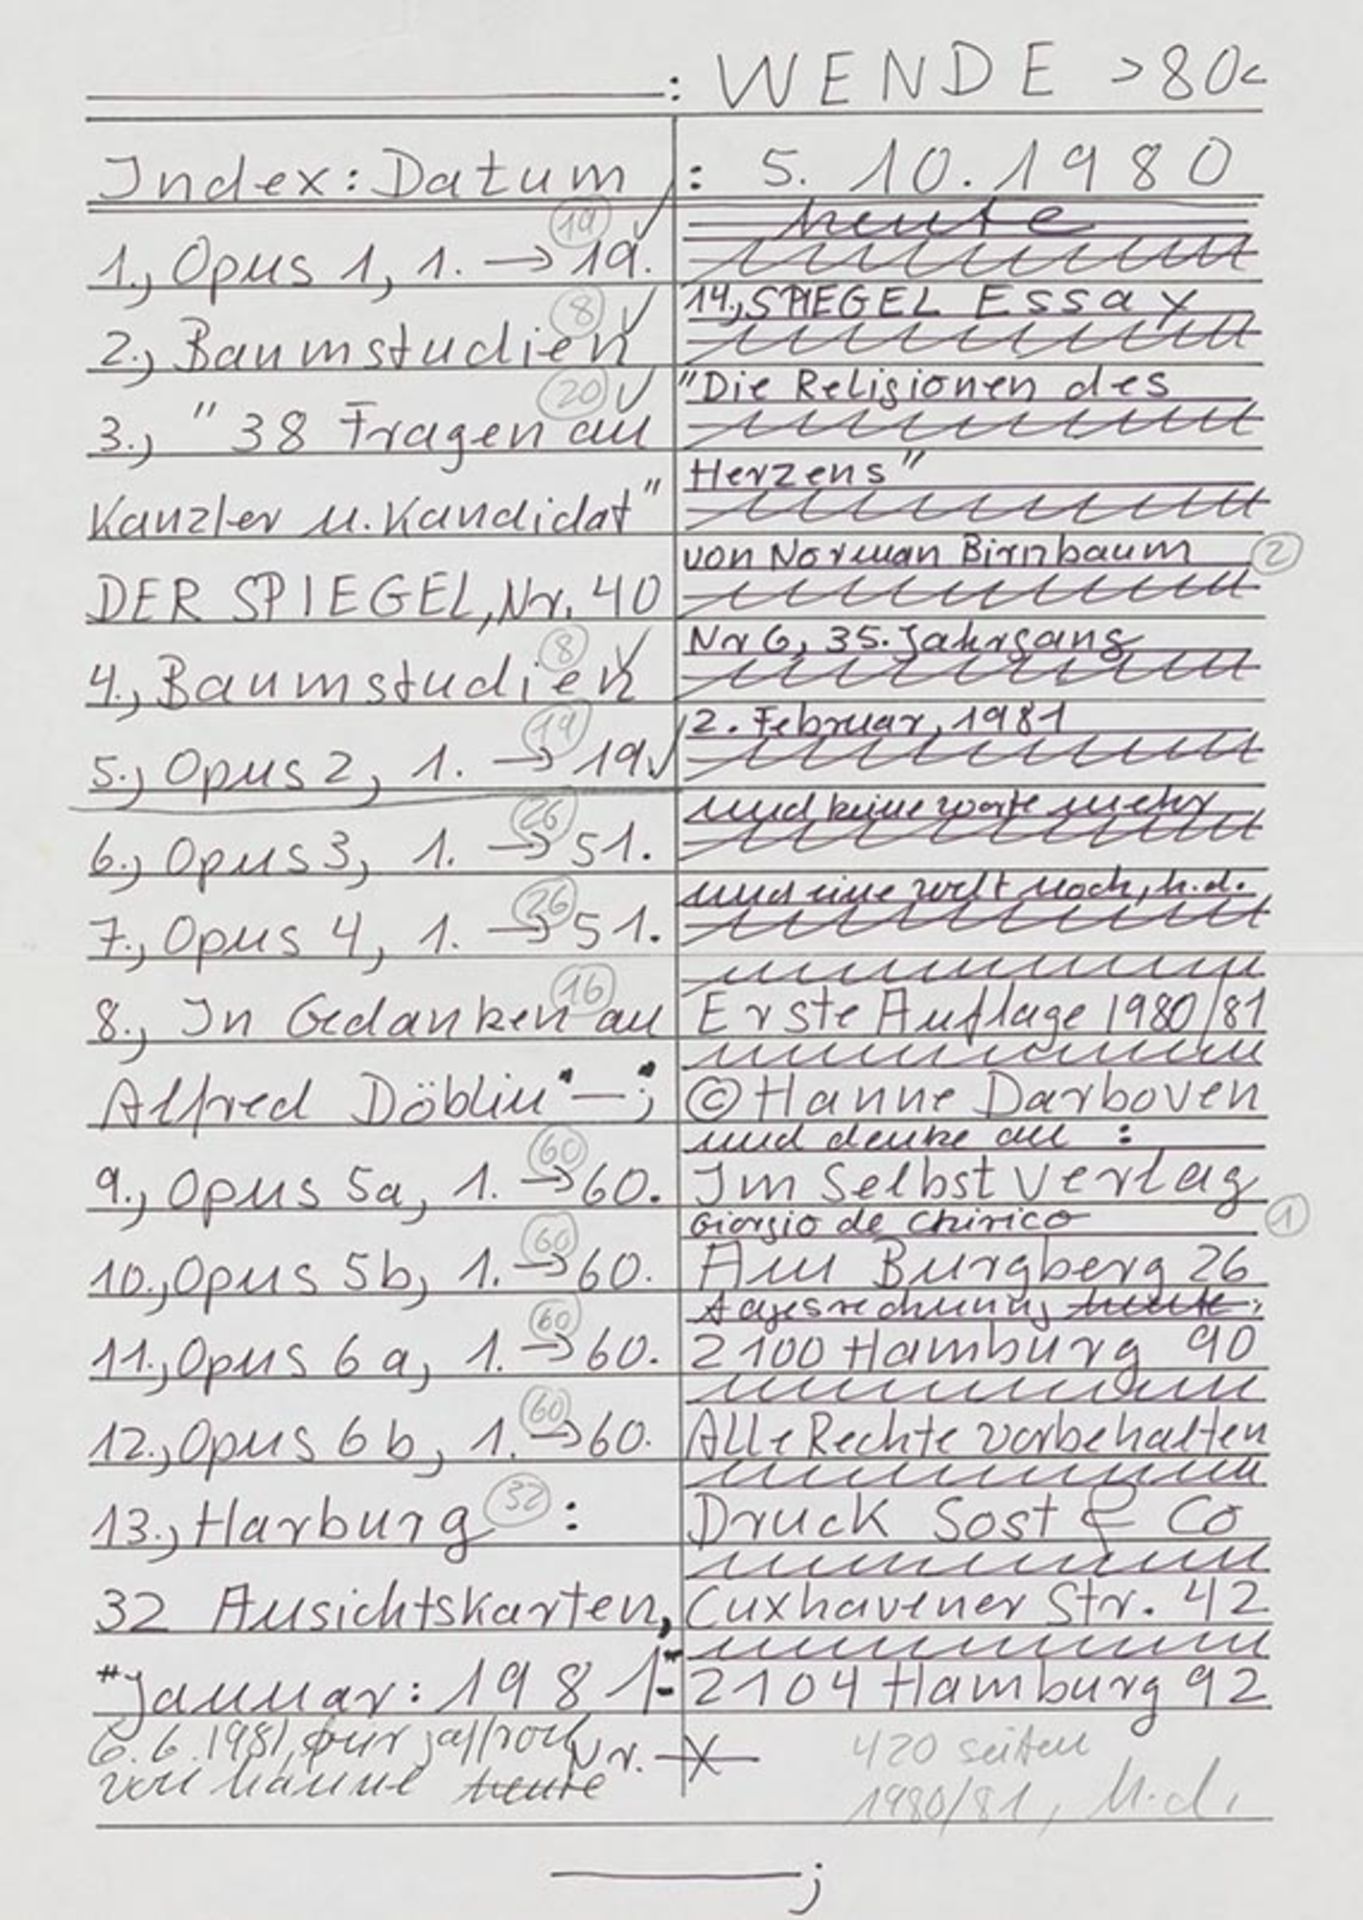 : WENDE >80<
Index: Datum : 5. 10. 1980
heute
19
1., Opus 1, 1. → 19.
8
2., Baumstudien
20
3., "38 Fragen an
Kanzler u. Kandidat"
DER SPIEGEL, Nr. 40
8
4., Baumstudien
19
5., Opus 2, 1. → 19
26
6., Opus 3, 1. → 51.
26
7., Opus 4, 1. → 51.
16
8., In Gedanken an
Alfred Döblin" —;
60
9., Opus 5a, 1. → 60.
60
10., Opus 5b, 1. → 60.
60
11., Opus 6a, 1. → 60.
60
12., Opus 6b, 1. → 60.
13., Harburg 32 :
32 Ansichtskarten,
"Januar: 1981"
14., SPIEGEL Essay
"Die Religionen des
Herzens"
von Norman Birnbaum 2
Nr 6, 35. Jahrgang
2. Februar, 1981
und keine worte mehr
und eine welt noch, h.d.
Erste Auflage 1980/81
© Hanne Darboven
und denke an :
Im Selbstverlag
Giorgio de Chirico 1
Am Burgberg 26
Tagesrechnung heute:
2100 Hamburg 90
Alle Rechte vorbehalten
Druck Sost & Co
Cuxhavener Str. 42
2104 Hamburg 92
6.6.1981, für
von hanne heute
Nr. X
420 seiten
1980/81, h.d.
;